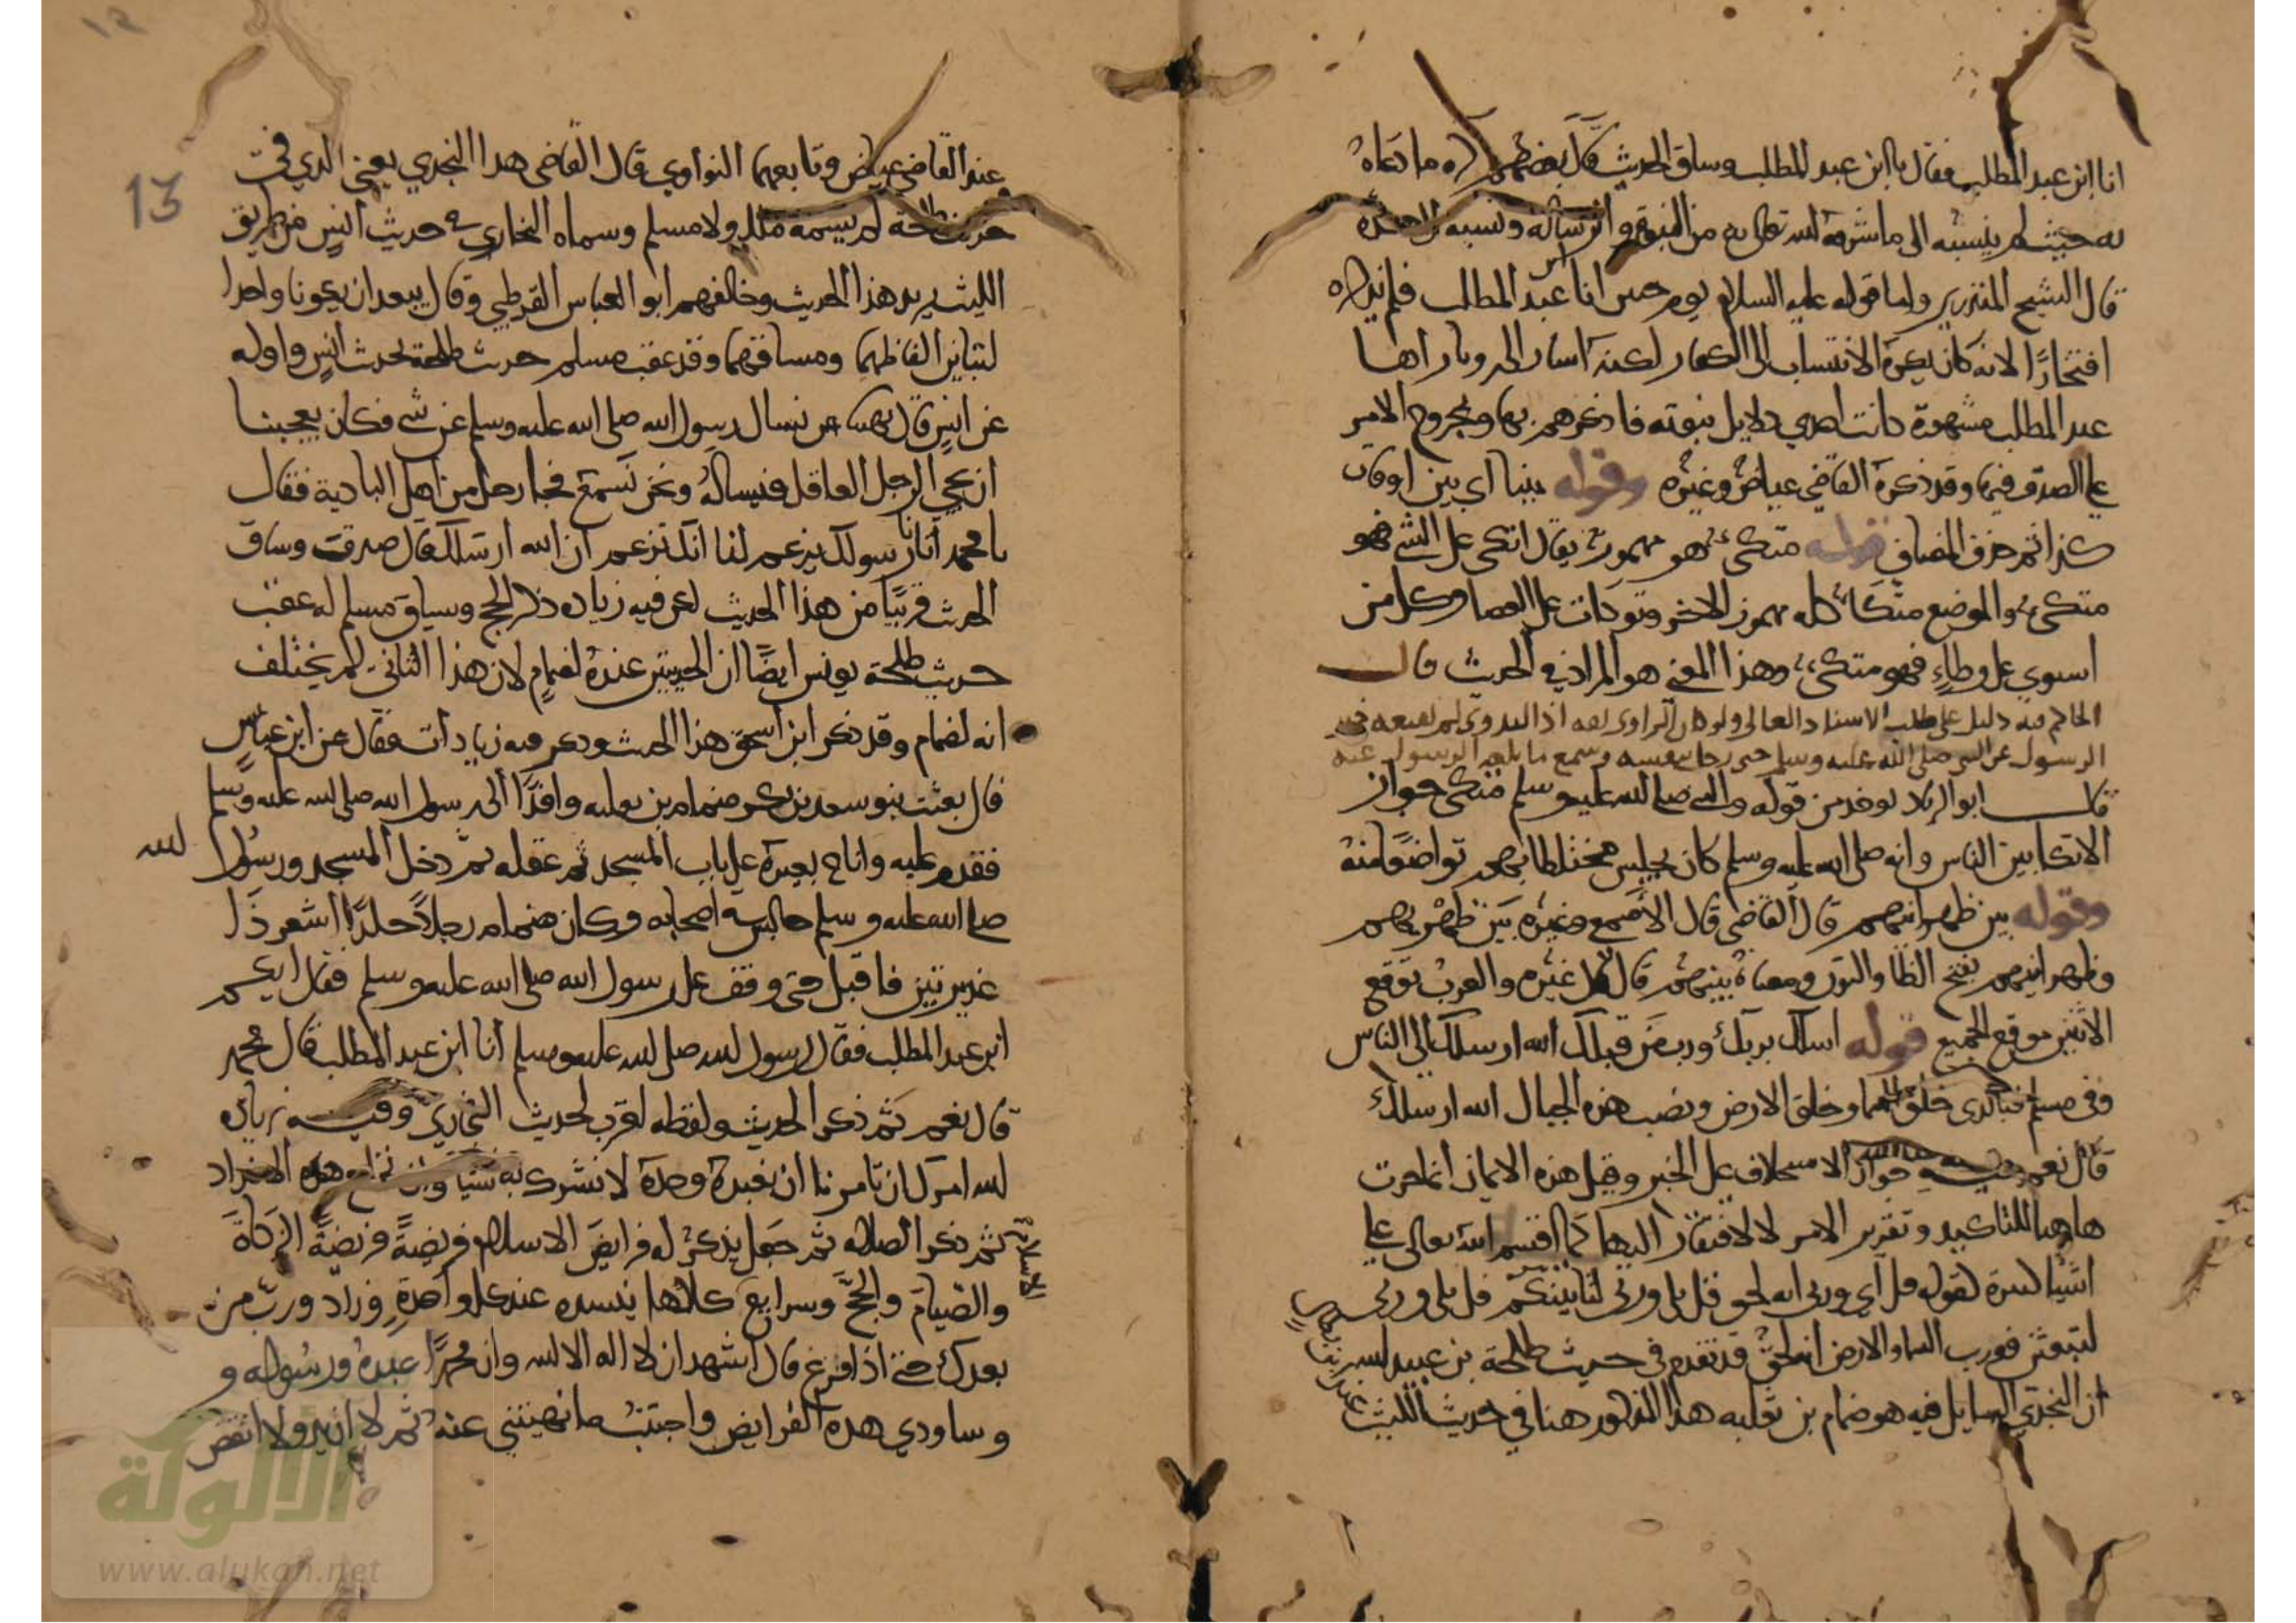 انا ابن عبد المطلب فقال يا ابن عبد المطلب وساق الحديث قال بعضهم كره ما دعاه
به حيث لم ينسبه الى ما شرفه الله تعالى به من النبوة والرسالة ونسبه الى جده
قال الشيخ المنذري واما قوله عليه السلام يوم حنين انا ابن عبد المطلب فلم يذكره
افتخارًا لانه كان يكره الانتساب الى الكفار لكنه اشار الى رويا راها
عبد المطلب مشهورة كانت احدى دلايل نبوته فاذكرهم بها وبخروج الامر
على الصدق فيها وقد ذكره القاضي عياض وغيره وقوله بينا اي بين اوقات
كذا ثم حذف المضاف قوله متكئ هو مهموز يقال اتكى على الشي فهو
متكئ والموضع متكأ كله مهموز الاخر وتوكات على العصا وكل من
استوى على وطاء فهو متكئ وهذا المعنى هو المراد في الحديث قال
الحاكم فيه دليل على طلب الاسناد العالي ولو كان الراوي ثقه اذ البدوي لم يقنعه خبر
الرسول عن النبي صلى الله عليه وسلم حتى رحل بنفسه وسمع ما بلغه الرسول عنه
قال ابو الزناد يوخذ من قوله والنبي صلى الله عليه وسلم متكئ جواز
الاتكا بين الناس وانه صلى الله عليه وسلم كان يجلس مختلطا بهم تواضعًا منه
وقوله بين ظهرانيهم قال القاضي قال الاصمعي وغيره بين ظهريهم
وظهرانيهم بفتح الظا والنون ومعناه بينهم قال غيره والعرب توقع
الاثنين موقع الجميع قوله اسالك بربك ورب من قبلك الله ارسلك الى الناس
وفي مسلم فبالذي خلق السما وخلق الارض ونصب هذه الجبال الله ارسلك
قال نعم فيه جواز الاستحلاف على الخبر وقيل هذه الايمان انما جرت
هاهنا للتاكيد وتقرير الامر لا لافتقار اليها كما اقسم الله تعالى على
اشيا كثيرة كقوله قل اي وربي انه لحق قل بلى وربي لتاتينكم قل بلى وربي
لتبعثن فورب السما والارض انه لحق قد تقدم في حديث طلحة بن عبيد الله
ان النجدي السايل فيه هو ضمام بن ثعلبه هذا المذكور هنا في حديث الليث
عند القاضي عياض وتابعهما النواوي قال القاضي هذا النجدي يعني الذي في
حديث طلحة لم يسمه مالك ولا مسلم وسماه البخاري في حديث انس من طريق
الليث يريد هذا الحديث وخالفهم ابو العباس القرطبي وقال يبعد ان يكونا واحدا
لتباين الفاظهما ومساقهما وقد عقب مسلم حديث طلحة بحديث انس واوله
عن انس قال نهينا ان نسال رسول الله صلى الله عليه وسلم عن شي فكان يعجبنا
ان يجي الرجل العاقل فيساله ونحن نسمع فجا رجل من اهل البادية فقال
يا محمد اتانا رسولك يزعم لنا انك تزعم ان الله ارسلك قال صدقت وساق
الحديث قريبًا من هذا الحديث لكن فيه زياده ذكر الحج وسياق مسلم له عقب
حديث طلحة يونس ايضًا ان الحديثين عنده لضمام لان هذا الثاني لم يختلف
انه لضمام وقد ذكر ابن اسحق هذا الحديث وذكر فيه زيادات فقال عن ابن عباس
قال بعثت بنو سعد بن بكر ضمام بن ثعلبه وافدًا الى رسول الله صلى الله عليه وسلم
فقدم عليه واناخ بعيره على باب المسجد ثم عقله ثم دخل المسجد ورسول الله
صلى الله عليه وسلم جالس في اصحابه وكان ضمام رجلاً جلدًا اشعر ذا
غديرتين فاقبل حتى وقف على رسول الله صلى الله عليه وسلم فقال ايكم
ابن عبد المطلب فقال رسول الله صلى الله عليه وسلم انا ابن عبد المطلب قال محمد
قال نعم ثم ذكر الحديث ولفظه لقرب لحديث البخاري وفيه زيادة
الله امرك ان تامرنا ان نعبده وحده لا نشرك به شيئا وان نخلع هذه الانداد
ثم ذكر الصلاه ثم جعل يذكر له فرايض الاسلام فريضةً فريضةً الزكاة
والصيام والحج وشرايع الاسلام كلها ينشده عند كل واحدة وزاد ورب من
بعدك حتى اذا فرغ قال اشهد ان لا اله الا الله وان محمدًا عبده ورسوله و
وساودي هذه الفرايض واجتنب ما نهيتني عنه ثم لا ازيد ولا انقص
13
الألوكة
www.alukah.net